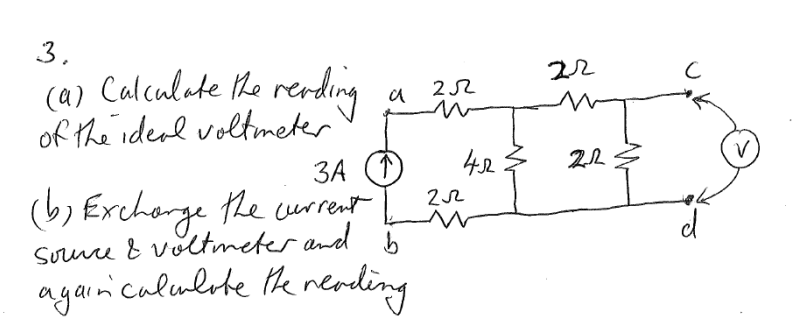 3.
(a) Calculate the reading
of the ideal voltmeter
(b) Exchange the current
source & voltmeter and
again calculate the reading
a 2Ω 2Ω c
3A 4Ω 2Ω V
2Ω
b d